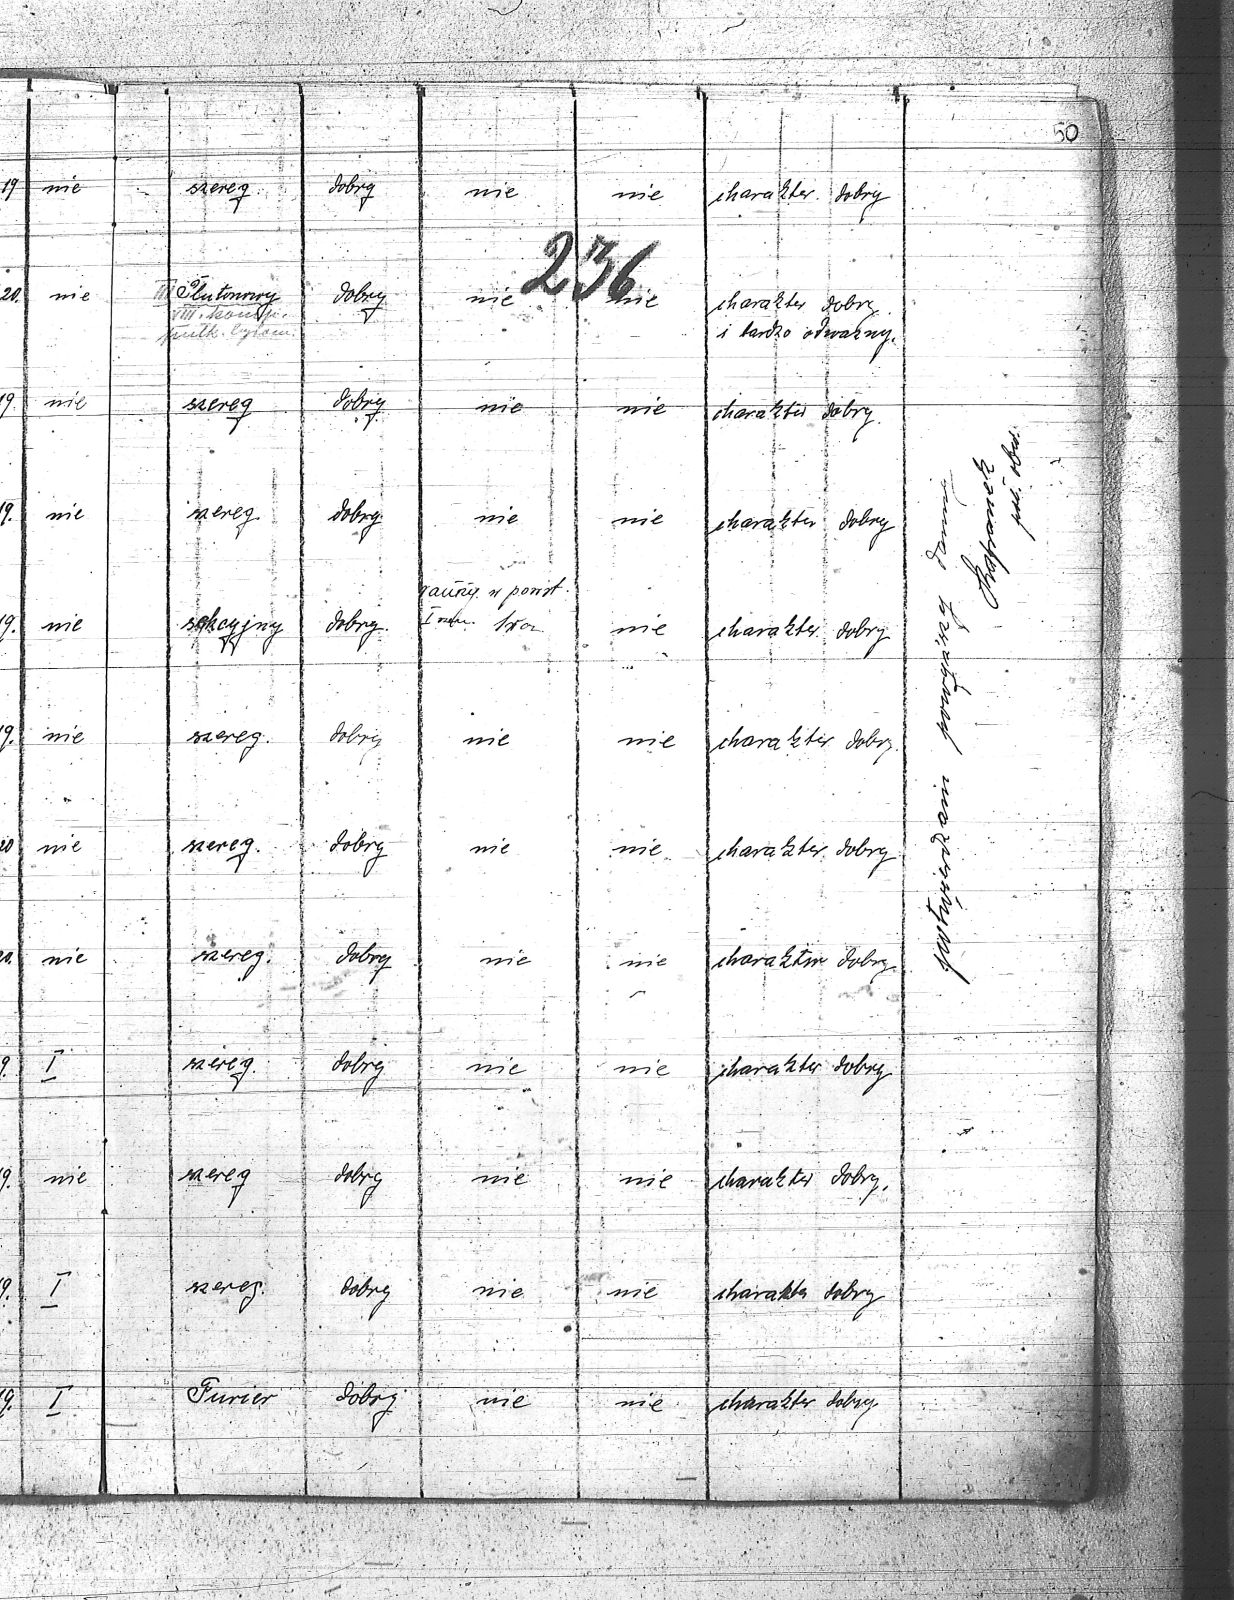 50
19 nie szereg. dobry nie nie charakter dobry
236
20. nie III Plutonowy dobry nie nie charakter dobry
III. komp. i bardzo odważny.
pułk.
19. nie szereg dobry nie nie charakter dobry.
19. nie szereg dobry nie nie charakter dobry
ranny w powst.
19. nie sekcyjny dobry nie charakter dobry
19. nie szereg. dobry nie nie charakter dobry
20 nie szereg. dobry nie nie charakter dobry
20. nie szereg. dobry nie nie charakter dobry
9. I szereg. dobry nie nie charakter dobry
19. nie szereg dobry nie nie charakter dobry.
19. I szereg. dobry nie nie charakter dobry
19. I Furier dobry nie nie charakter dobry.
poświadczam powyższych